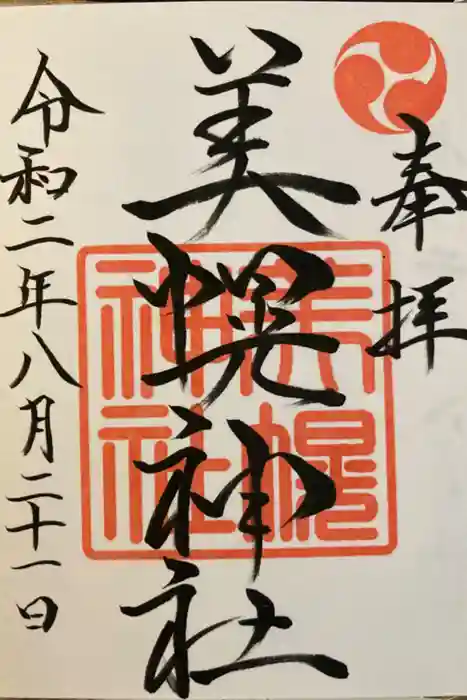 奉拝
美幌神社
美幌神社
令和二年八月二十一日